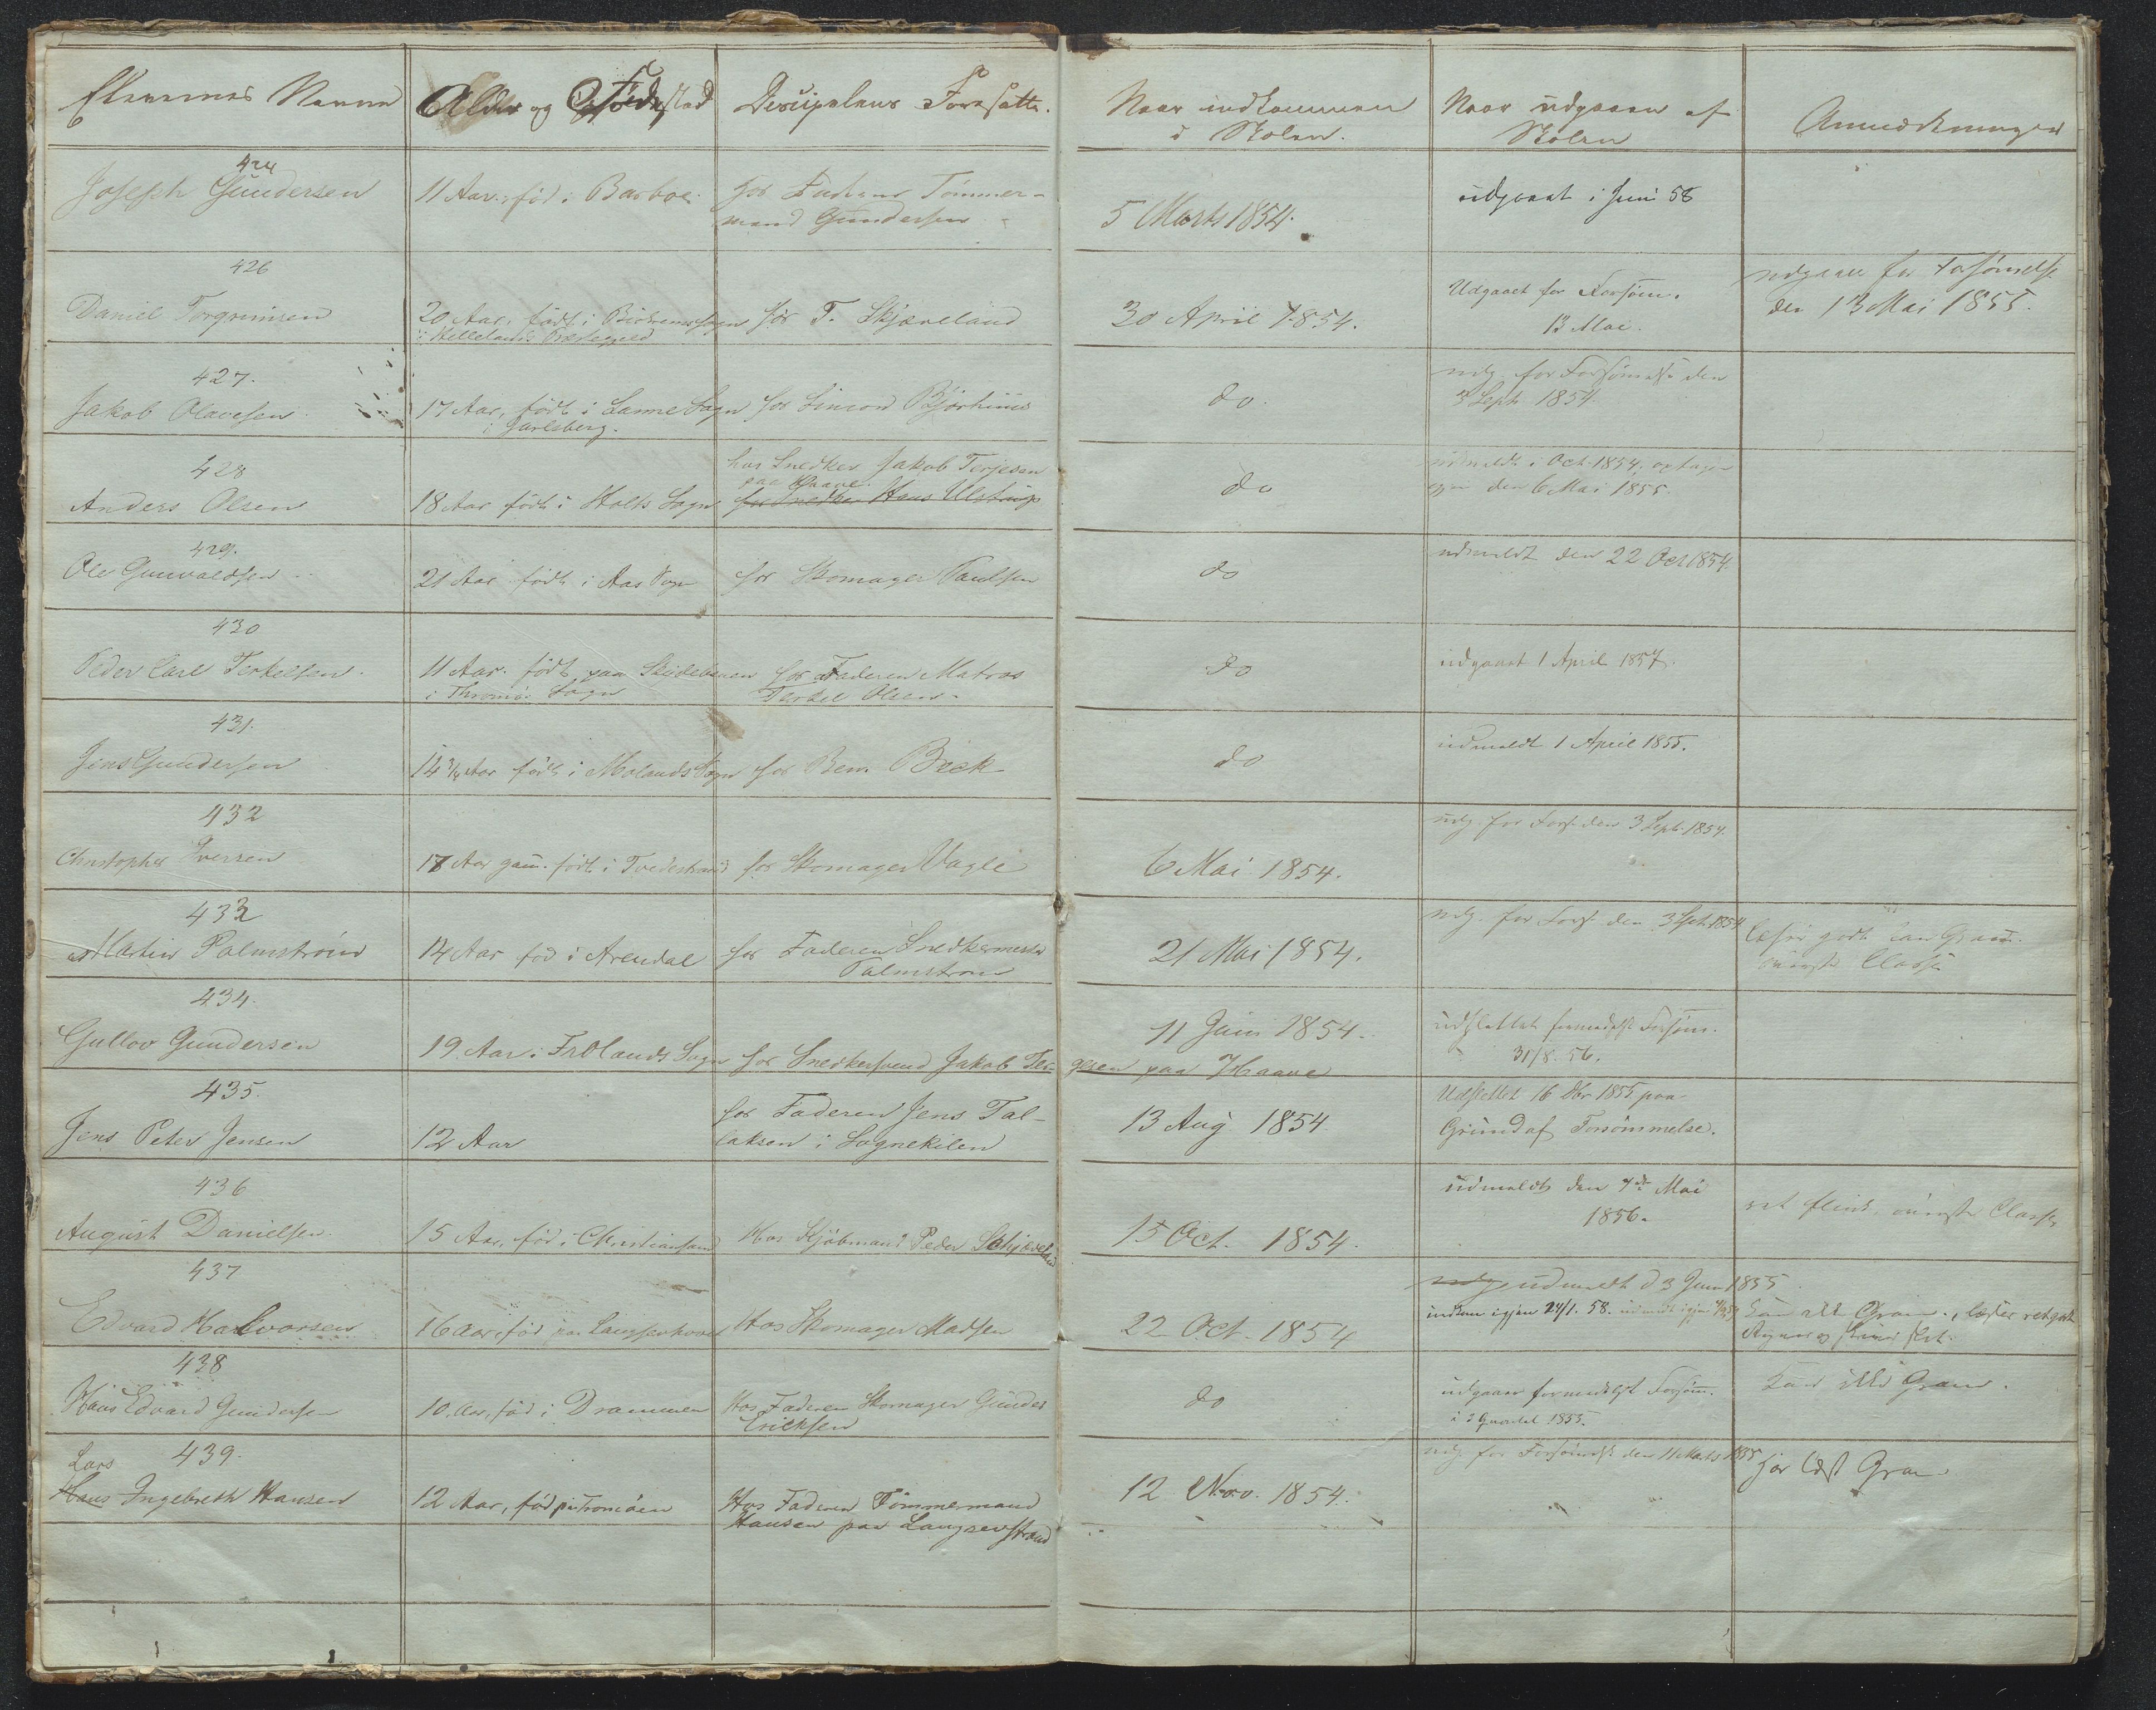 Elevernes Navne
Alder og Fødested
Discipelens Foresatte.
Naar indkommen
i Skolen.
Naar udgaaen af
Skolen
Anmærkninger
424
Joseph Gundersen
11 Aar, fød i Barboe.
hos Faderen Tømmer-
mand Gundersen
5 Marts 1854.
udgaaet i Juni 58
426
Daniel Torgrimsen
20 Aar, født i
i Hellelands Præstegjeld
hos T. Skjæveland
30 April 1854.
Udgaaet for Forsøm.
13 Mai.
udgaaet for Forsømelse
den 13 Mai 1855.
427.
Jakob Olavesen
17 Aar, født i Sogn
i Jarlsberg.
hos
do.
udg. for Forsømelse den
3 Sept 1854.
428
Anders Olsen
18 Aar født i Holts Sogn
hos Snedker Jakob Terjesen
paa Haave.
hos Snedker Hans Ulstrup
do
udmeldt i Oct. 1854, optagen
igjen den 6 Mai 1855.
429.
Ole Gunvaldsen
21 Aar født i Aas Sogn
hos Skomager Paulsen
do
udmeldt den 22 Oct 1854.
430
Peder Carl Terkelsen.
11 Aar. født paa Skydebanen
i Thromø Sogn
hos Faderen Matros
Terkel Olsen.
do
udgaaet 1 April 1857.
431.
Jens Gundersen
14 3/4 Aar født i Molands Sogn
hos Rem. Beck
do
udmeldt 1 April 1855.
432
Christopher Iversen
17 Aar gam. født i Tvedestrand
hos Skomager Vagle
6 Mai 1854.
udg. for Fors. den 3 Sept. 1854.
433
Martin Palmstrøm
14 Aar fød i Arendal
hos Faderen Snedkermester
Palmstrøm
21 Mai 1854.
udg. for Fors. den 3 Sept. 1854
læser godt kan Gram
øverste Classe
434.
Gullov Gundersen
19 Aar i Frolands Sogn
hos Snedkersvend Jakob Ter-
gesen paa Haave
11 Juni 1854.
udslettet formedelst Forsøm.
31/8. 56.
435.
Jens Peter Jensen
12 Aar
hos Faderen Jens Tal-
laksen i Sognekilen
13 Aug 1854
Udslettet 16 Dbr 1855 paa
Grund af Forsømmelse.
436
August Danielsen.
15 Aar, fød i Christiansand
Hos Kjøbmand Peder Schjæveland
15 Oct. 1854.
udmeldt den 4de Mai
1856.
ret flink, øverste Classe
437
Edvard Halvorsen
16 Aar, fød paa Langsævhovet
Hos Skomager Madsen
22 Oct. 1854
udg udmeldt d 3 Juni 1855
indkom igjen 24/1. 58. udmeldt igjen
kan ikke Gram., læser ret godt
Regner og skriver slet.
438
Hans Edvard Gundersen
10. Aar, fød i Drammen
Hos Faderen Skomager Gunder
Ericksen
do
udgaaer formedelst Forsøm.
i 3 Quartal 1855.
kan ikke Gram.
439.
Lars
Hans Ingebreth Hansen
12 Aar, fød paa Tromøen
Hos Faderen Tømmermand
Hansen paa Langsævstrand
12 Nov. 1854.
udg for Forsømelse den 11 Marts 1855
har læst Gram